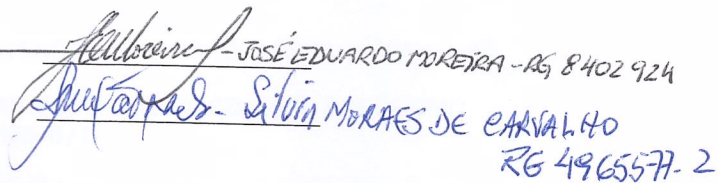 - JOSÉ EDUARDO MOREIRA - RG 8402924
- Silvia MORAES DE CARVALHO
RG 4965577-2